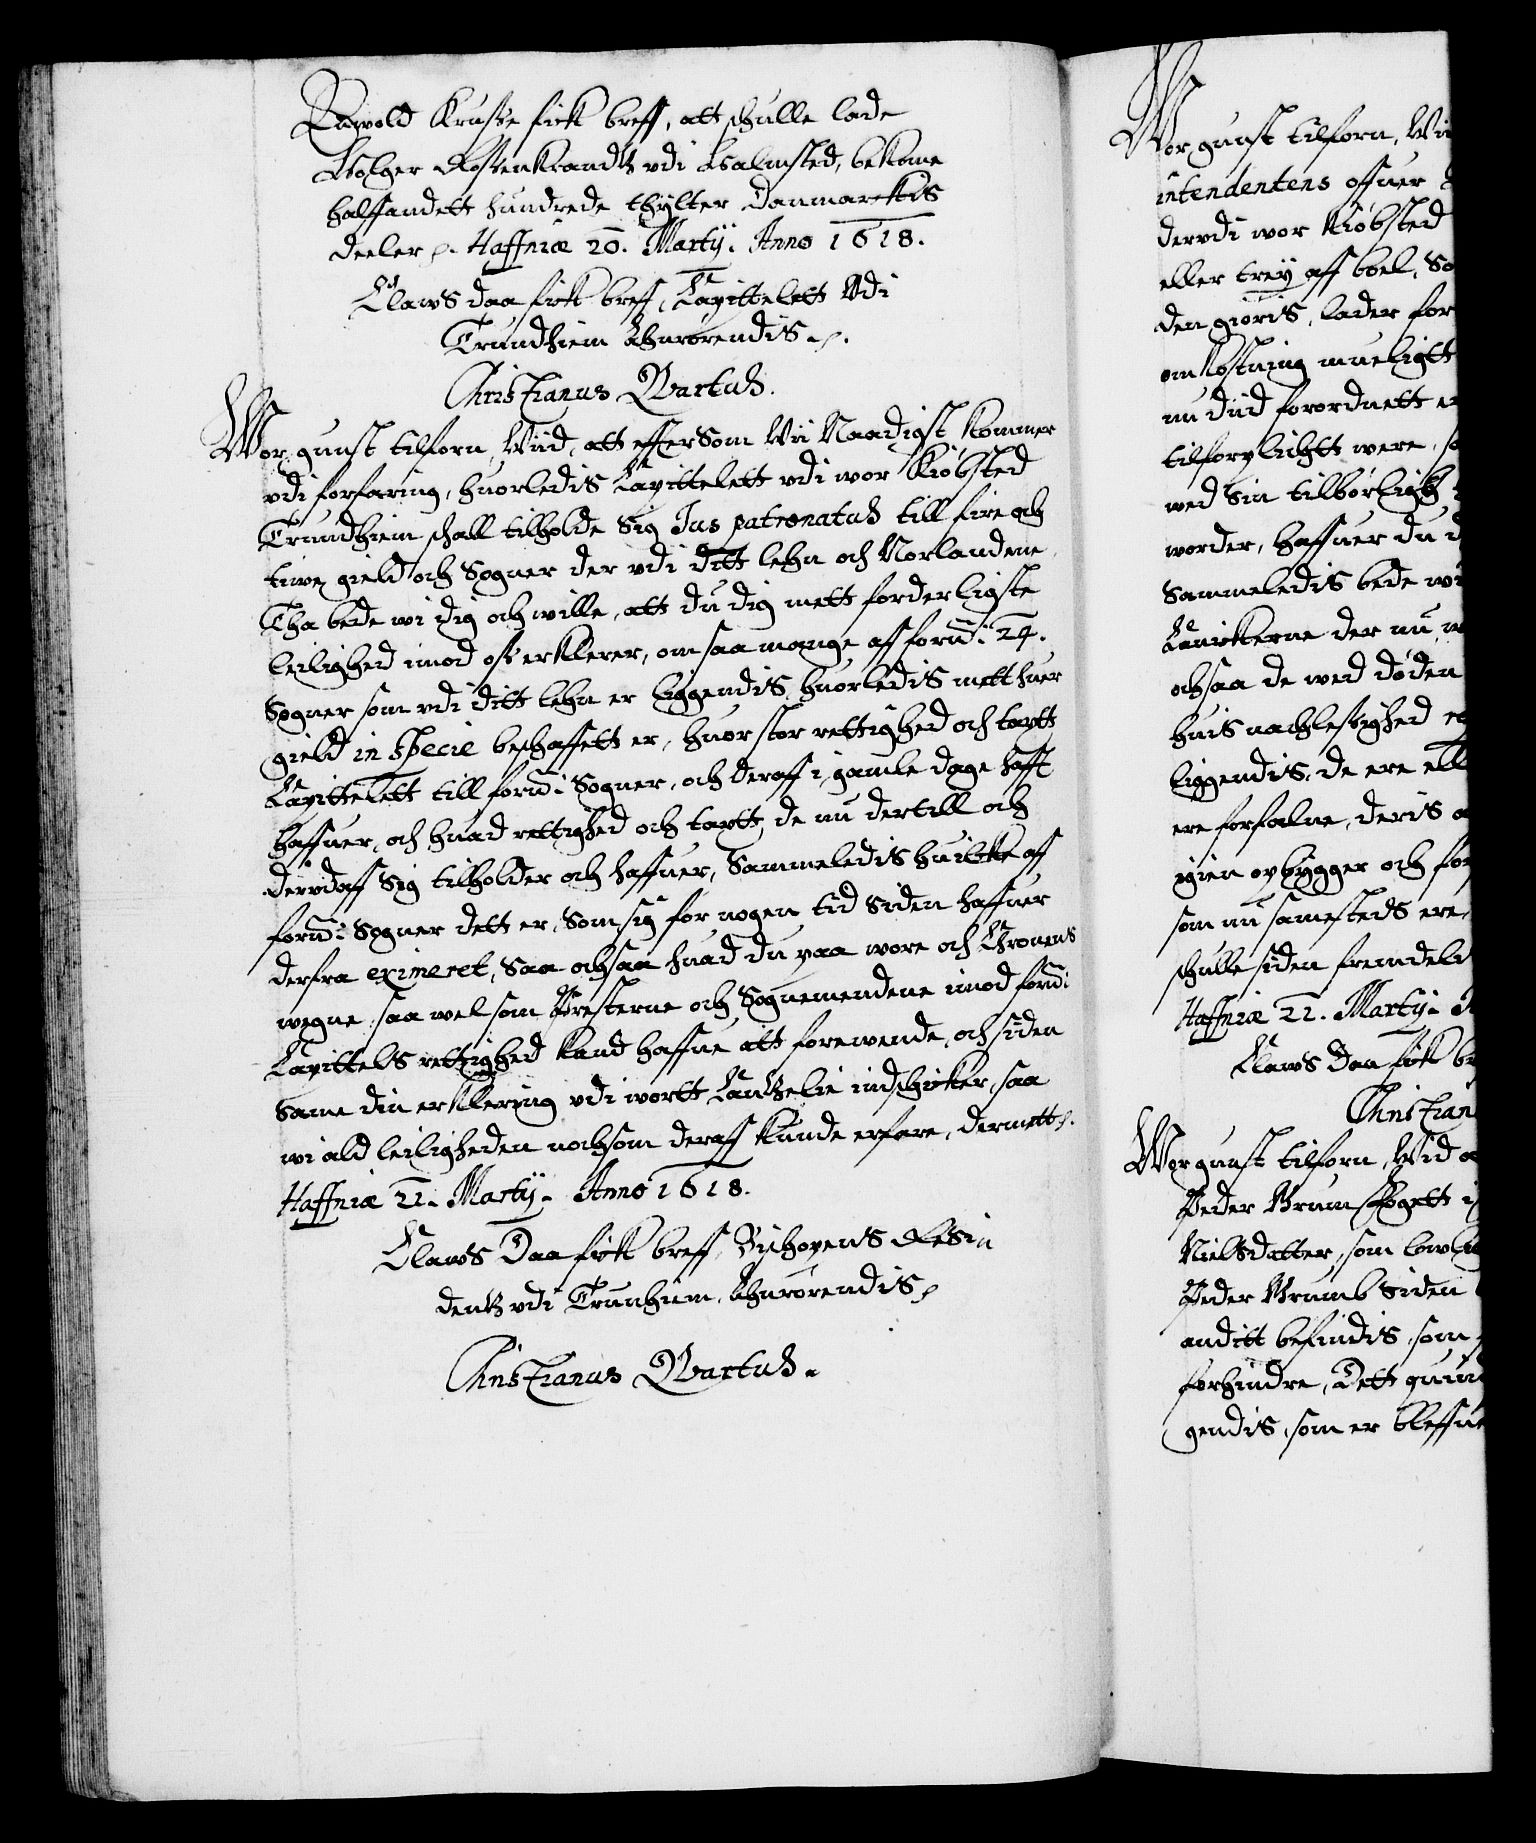 Enwold Krusse fick breff, att schulle lade
Holger Rossenkrandtz vdi Halmsted, bekome
halffandett hundrede thylter Danmarckis
deeler p. Haffniæ 20. Martij. Anno 1618.
Claws Daa fick breff, Capittelett Vdi
Trundhiem Anrørendis p.
Christianus Qvartus.
Wor gunst tilforn, Viid, att effterSom Vii Naadigst kommer
vdi forfaring, huorledis Capittelett vdi wor Kiøbsted
Trundhiem schall tilholde Sig Jus patronatus till fire och
tiwe gield och Sogner der vdi ditt lehn och Norlandene,
Tha bede wi dig och wille, att du dig mett forderligste
leilighed imod os erklerer, om saa mange aff forne: 24.
Sogner som vdi ditt lehn er liggendis, huorledis mett huer
gield in specie beschaffett er, huor stor rettighed och taxtt
Capittelett till forne: Sogner, och deraff i gamle dage hafft
haffuer, och huad rettighed och taxtt, de nu dertill och
dervdaff Sig tilholder och haffuer, Sammeledis huilcke aff
forne: Sogner dett er, Som sig for nogen tid siden haffuer
derfra eximeret, Saa ochsaa huad du paa wore och Cronens
wegne, saa wel som Presterne och Sognemendene imod forne:
Capittels rettighed kand haffue att forewende, och siden
Same din erklering vdi wortt Cantzelie indschicker, saa
wi ald leiligheden nochsom deraff kunde erfare, dermett p.
Haffniæ 22. Martij. Anno 1618.
Claws Daa fick breff, Bischopens Resi
dentz vdi Trunhiem, Anrørendis p
Christianus Qvartus.
Wor gunst tilforn, Vii
intendentens offuer
dervdi wor Kiøbsted
eller trey aff boel, So
den giøris, lader for
omkostning mueligtt
nu diid forordnett er
tilforplichtt were, so
wed sin tilbørligh
worder, haffuer du d
Sammeledis bede wi
Canickerne der nu w
ochsaa de wed døden
huis nachlessighed
liggendis, de ere ell
ere forfalne, deris
igien opbygger och for
som nu samesteds ere,
schulle siden fremdelis
Haffniæ 22. Martij. A
Claws Daa fick br
Christian
Wor gunst tilforn, Vid a
Peder Brum, fogett i
Nielsdatter, som lowlig
Peder Brumb siden
anditt befindis, som
forhindre, Dett quind
gendis, som er bleffue